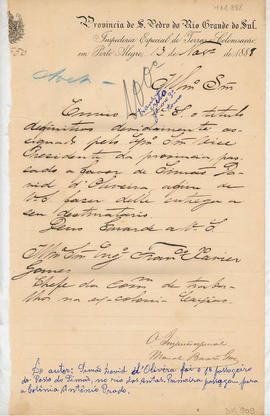 Provincia de S. Pedro do Rio Grande do Sul.
Inspectoria Especial de Terras e Colonisação,
em Porto Alegre, 13 de Março de 1888
Illmo Snr
a V. S. o titulo
definitivo devidamente as-
signado pelo Exmo Snr Vice
Presidente da provincia pas-
sado a favor de Simão Da-
vid d'Oliveira afim de
V. S. fazer delle entrega a
seu destinatario.
Deus Guarde a V. S.
Illmo Snr Engo Franco Xavier
Gomes
Chefe da Comm de traba-
lhos na ex-colonia Caxias
O Inspector especial
Manoel
Do autor: Simão David d'Oliveira foi o 1º passageiro
do Passo do Simão, no rio das Antas. Primeiro passagem para
a Colonia Antônio Prado.